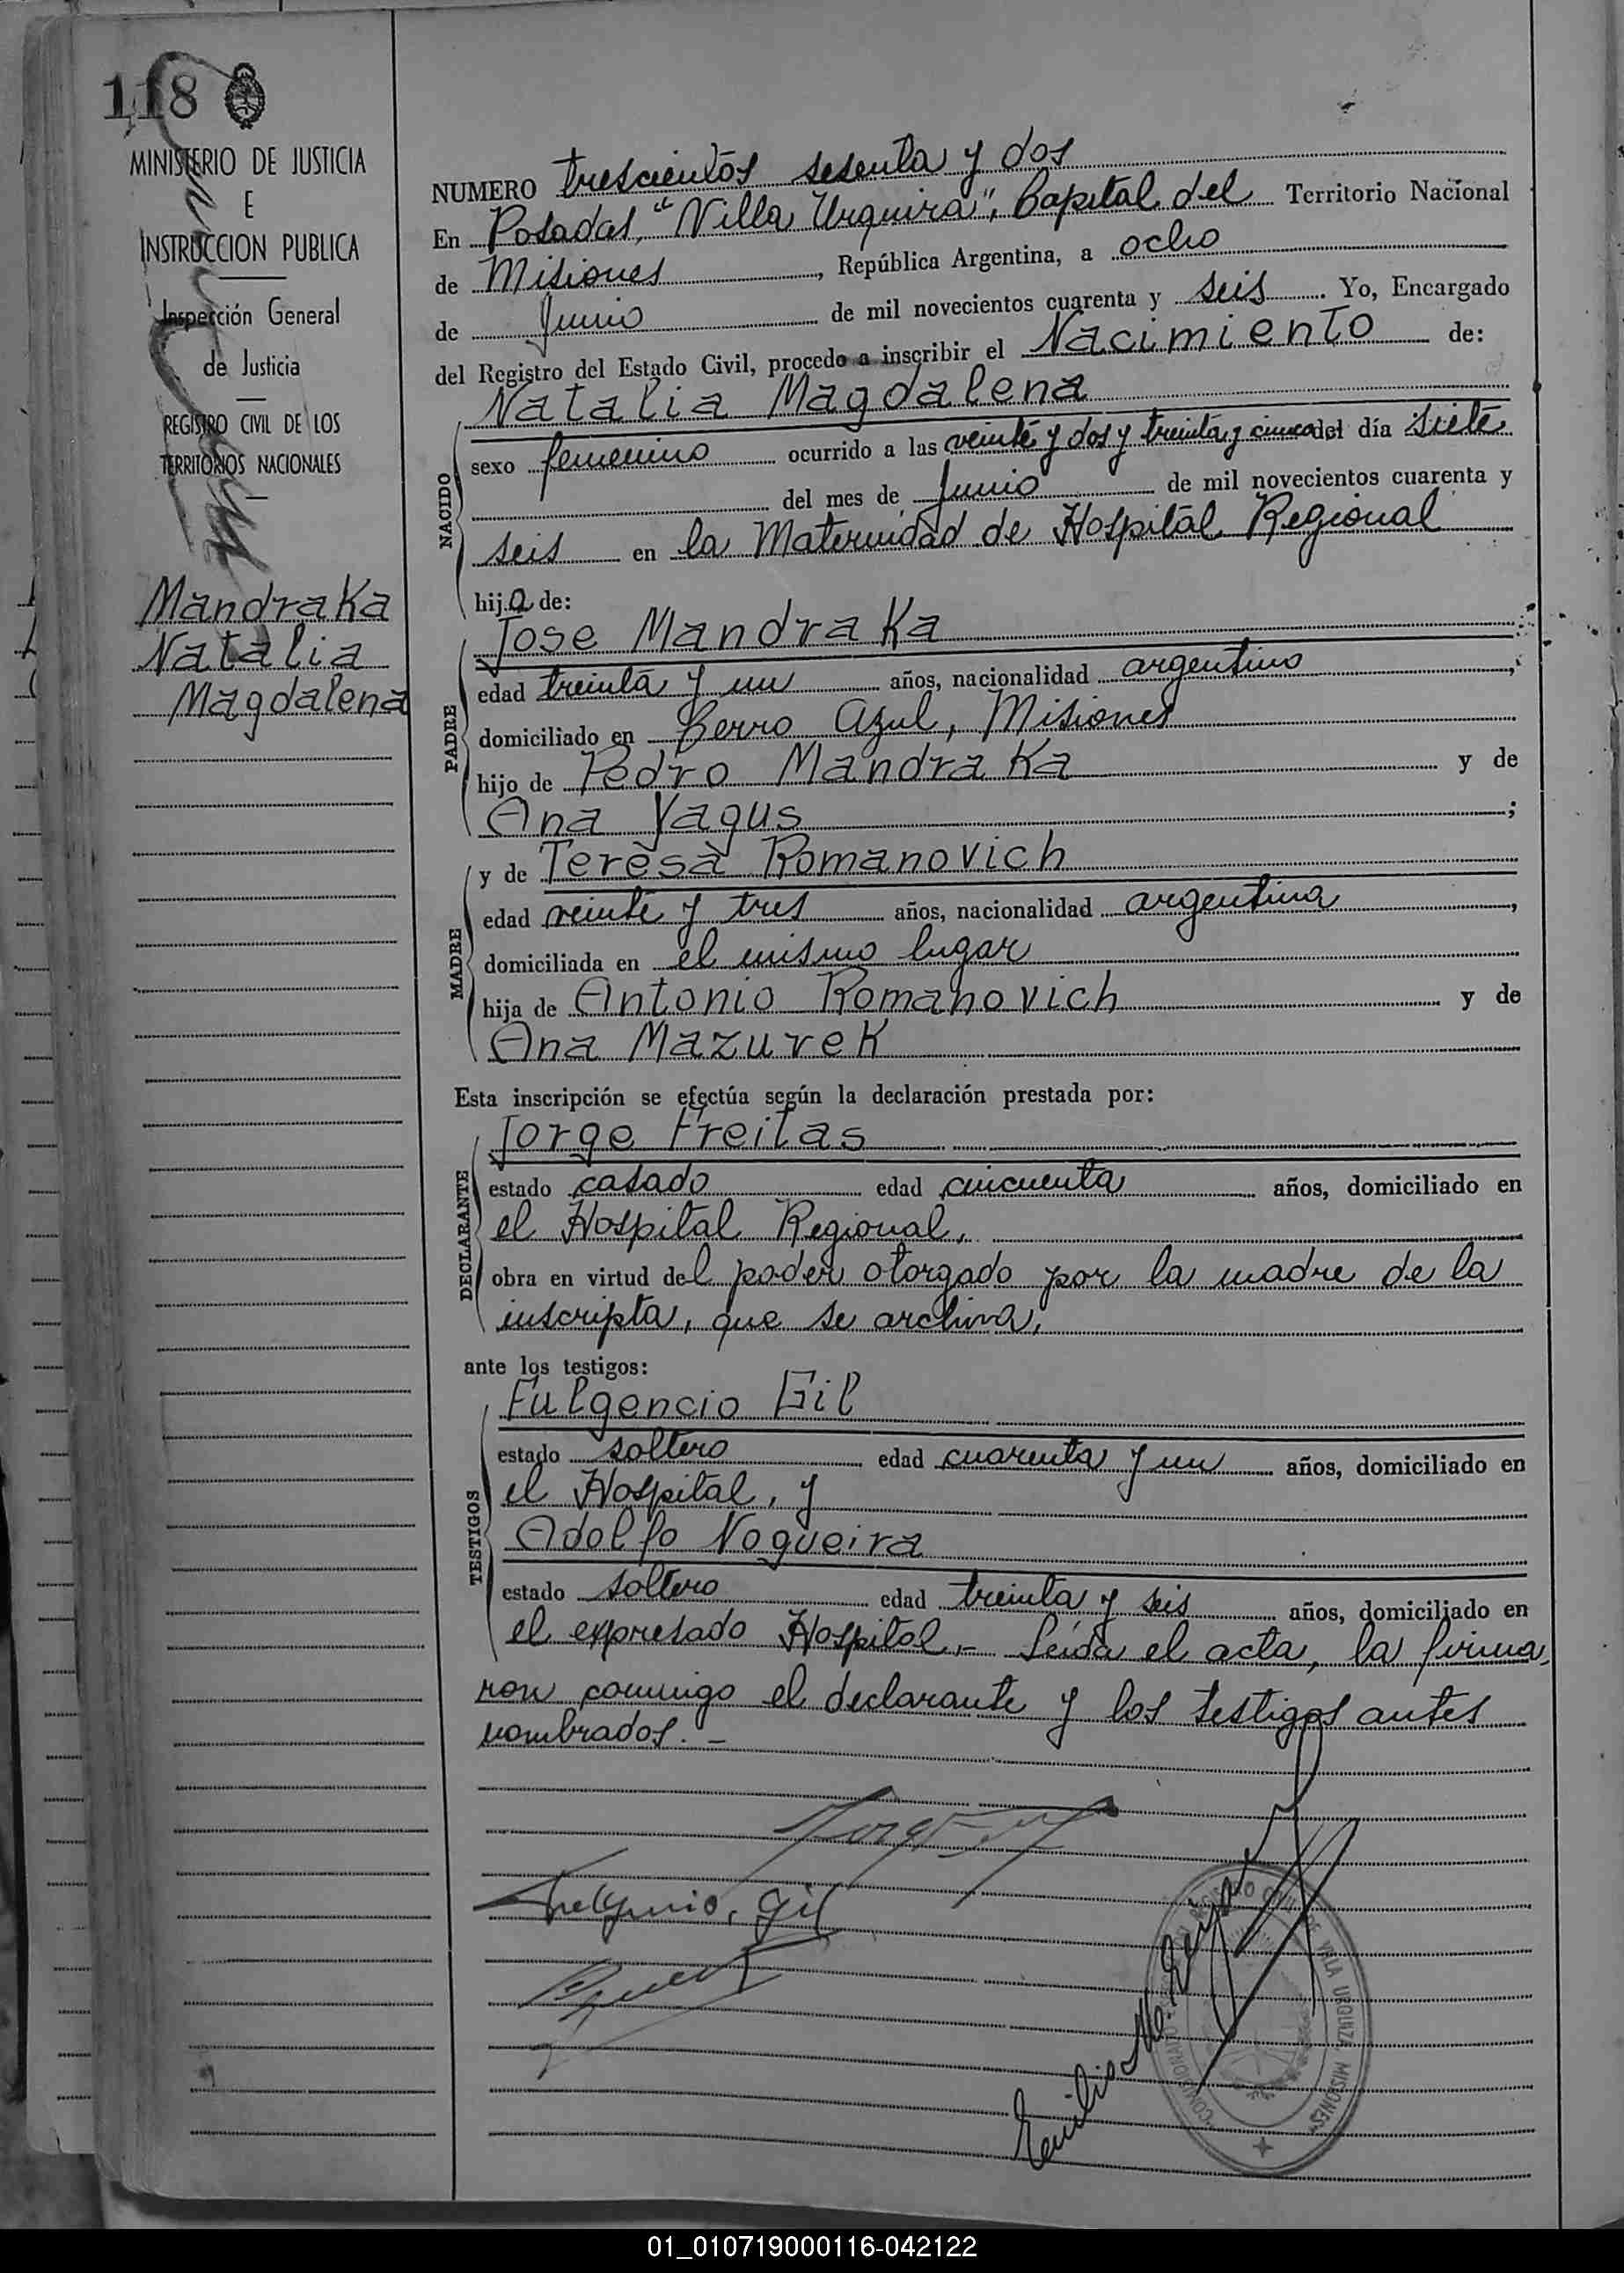 118
MINISTERIO DE JUSTICIA
E
INSTRUCCION PUBLICA
Inspección General
de Justicia
REGISTRO CIVIL DE LOS
TERRITORIOS NACIONALES
Mandraka
Natalia
Magdalena
NUMERO trescientos sesenta y dos
En Posadas, "Villa Urquiza", Capital del Territorio Nacional
de Misiones, República Argentina, a ocho
de Junio de mil novecientos cuarenta y seis. Yo, Encargado
del Registro del Estado Civil, procedo a inscribir el Nacimiento de:
Natalia Magdalena
NACIDO
sexo femenino ocurrido a las veinte y dos y treinta y cinco del día siete
del mes de Junio de mil novecientos cuarenta y
seis en la Maternidad de Hospital Regional
hija de:
PADRE
Jose Mandraka
edad treinta y un años, nacionalidad argentino,
domiciliado en Cerro Azul, Misiones
hijo de Pedro Mandraka y de
Ana Yagus;
MADRE
y de Teresa Romanovich
edad veinte y tres años, nacionalidad argentina,
domiciliada en el mismo lugar
hija de Antonio Romanovich y de
Ana Mazurek
Esta inscripción se efectúa según la declaración prestada por:
DECLARANTE
Jorge Freitas
estado casado edad cincuenta años, domiciliado en
el Hospital Regional,
obra en virtud del poder otorgado por la madre de la
inscripta, que se archiva,
ante los testigos:
TESTIGOS
Fulgencio Gil
estado soltero edad cuarenta y un años, domiciliado en
el Hospital, y
Adolfo Nogueira
estado soltero edad treinta y seis años, domiciliado en
el expresado Hospital.- Leída el acta, la firma
ron conmigo el declarante y los testigos antes
nombrados.-
Fulgencio, Gil
Emilio
REGISTRO CIVIL DE VILLA URQUIZA MISIONES
01_010719000116-042122